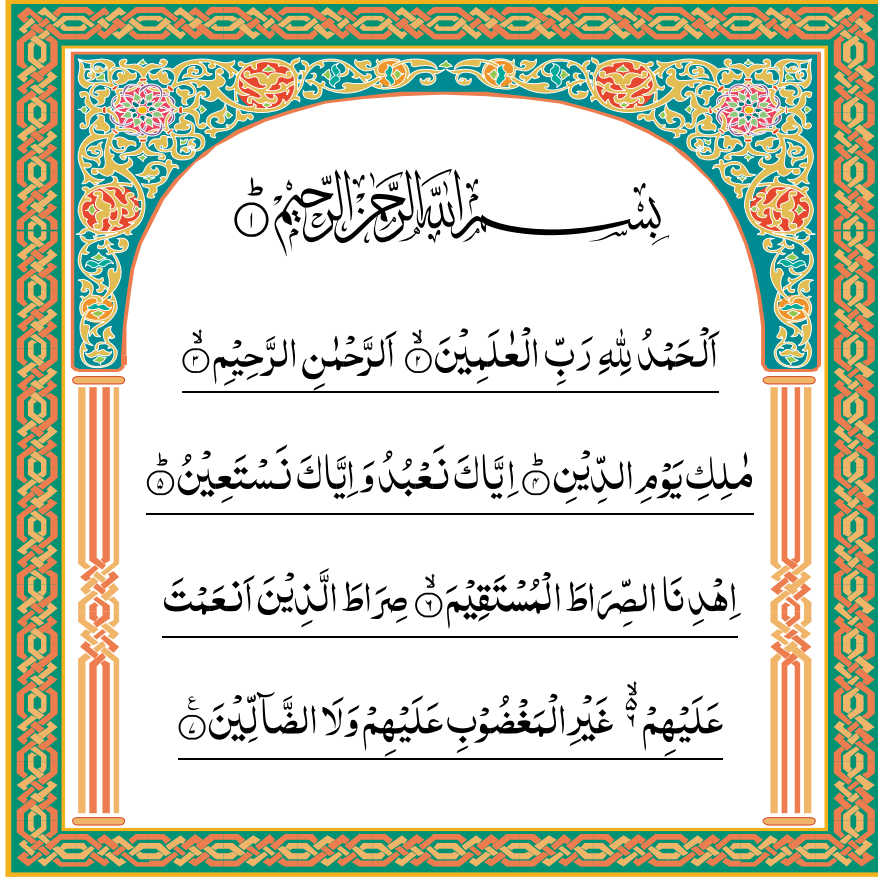 بِسْمِ اللّٰهِ الرَّحْمٰنِ الرَّحِيْمِ ۝۱ؕ
اَلْحَمْدُ لِلّٰهِ رَبِّ الْعٰلَمِيْنَ ۝۲ۙ اَلرَّحْمٰنِ الرَّحِيْمِ ۝۳ۙ
مٰلِكِ يَوْمِ الدِّيْنِ ۝۴ؕ اِيَّاكَ نَعْبُدُ وَاِيَّاكَ نَسْتَعِيْنُ ۝۵ؕ
اِهْدِنَا الصِّرَاطَ الْمُسْتَقِيْمَ ۝۶ۙ صِرَاطَ الَّذِيْنَ اَنْعَمْتَ
عَلَيْهِمْ ۙ۬ۦ غَيْرِ الْمَغْضُوْبِ عَلَيْهِمْ وَلَا الضَّآلِّيْنَ ۝۷ع